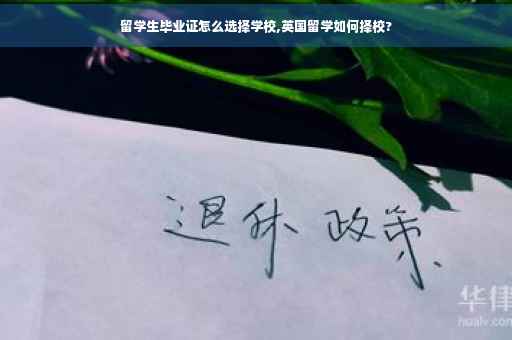 留学生毕业证怎么选择学校,英国留学如何择校?
退休 政策
华律
hualv.com